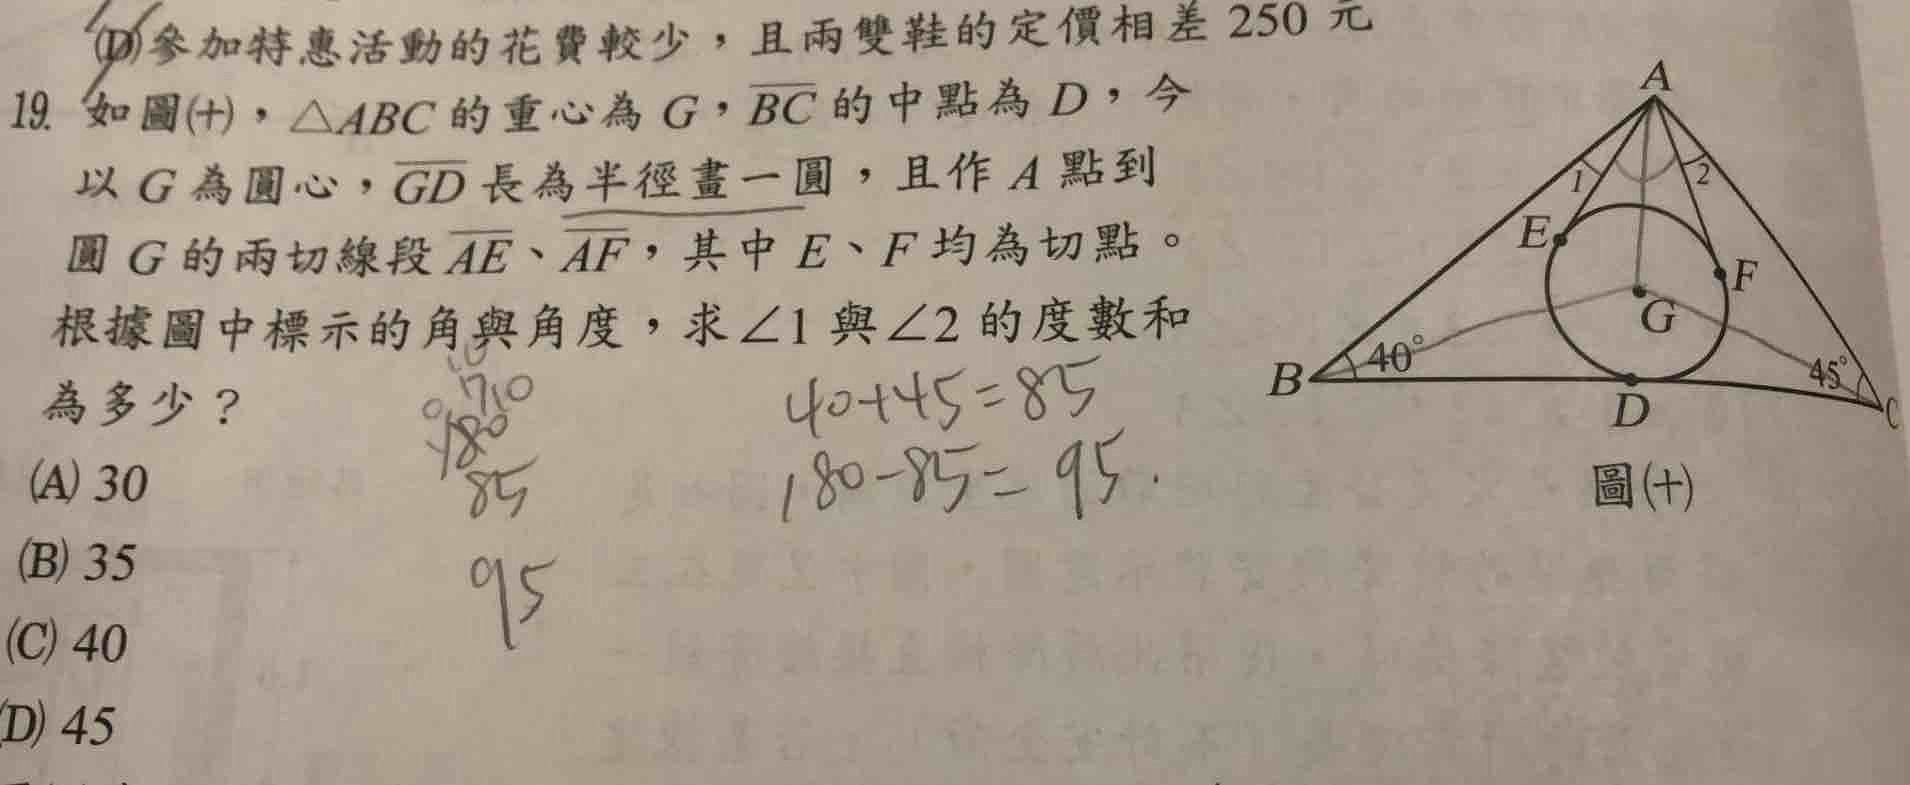 (D)參加特惠活動的花費較少，且兩雙鞋的定價相差 250 元
19. 如圖(十)，△ABC 的重心為 G，BC 的中點為 D，今
以 G 為圓心，GD 長為半徑畫一圓，且作 A 點到
圓 G 的兩切線段 AE、AF，其中 E、F 均為切點。
根據圖中標示的角與角度，求∠1 與∠2 的度數和
為多少？
(A) 30
(B) 35
(C) 40
(D) 45
40+45=85
180-85=95.
180
85
95
A
1
2
E
F
G
B
40°
45°
D
C
圖(十)